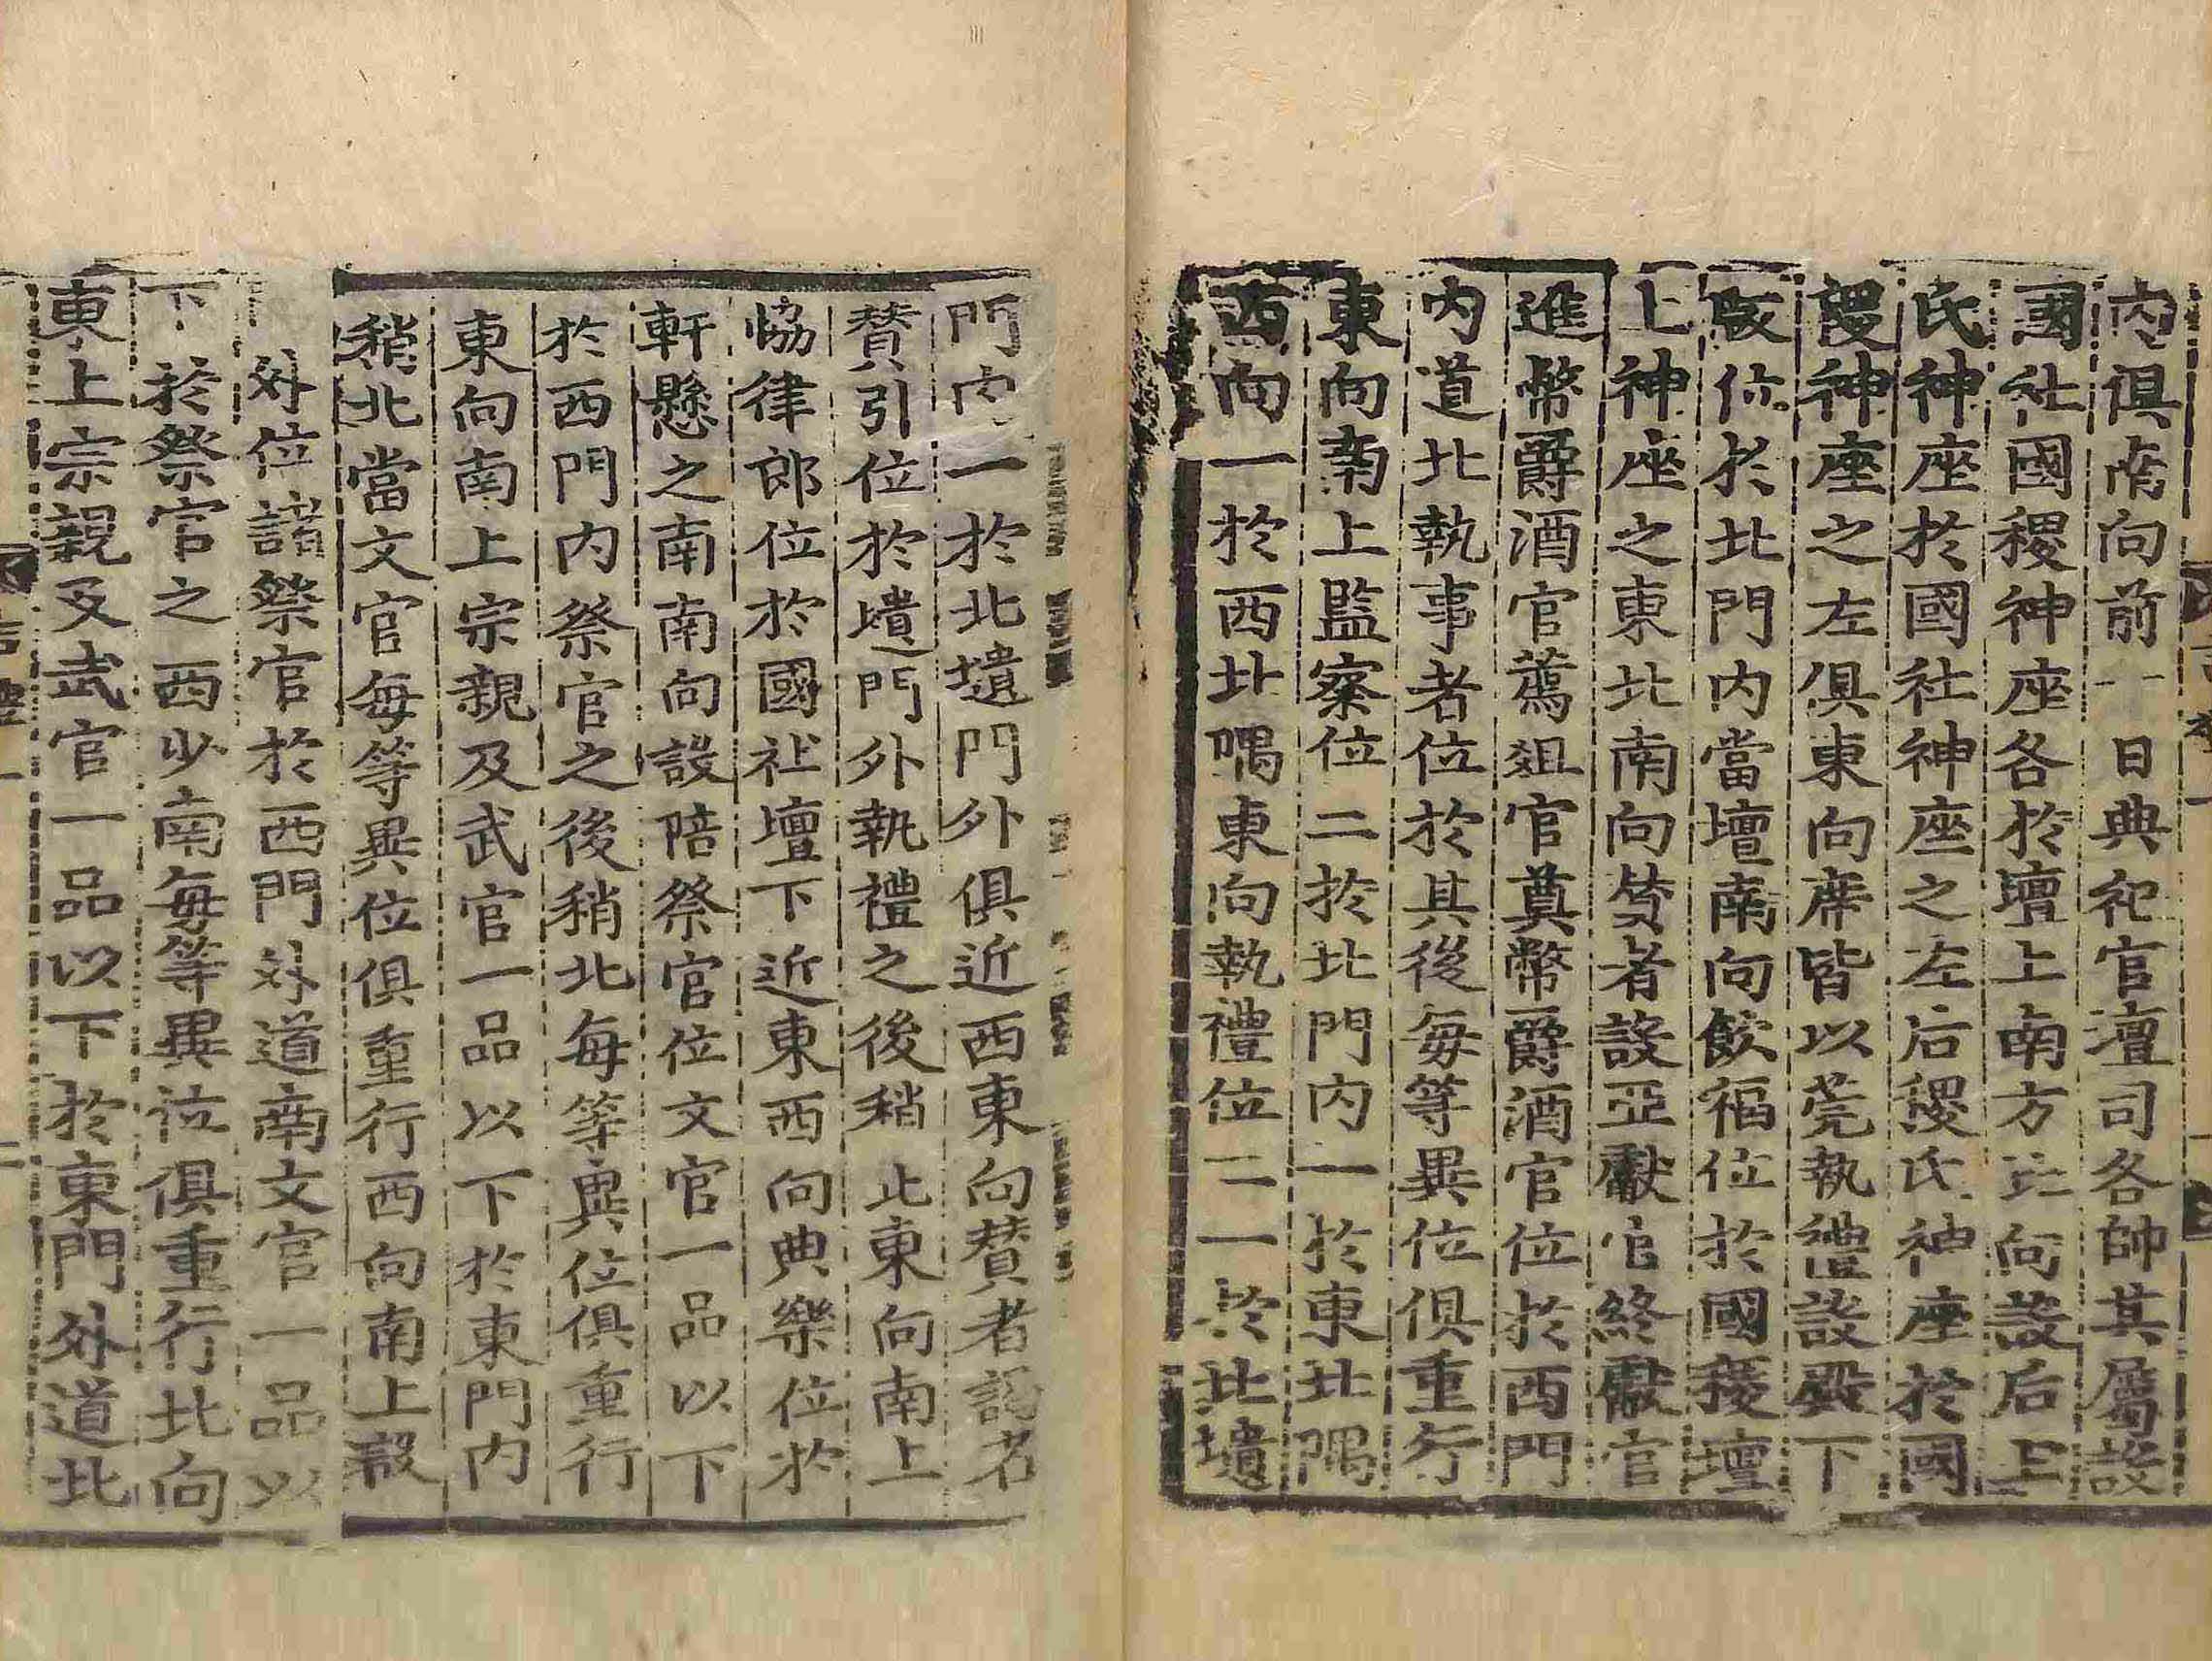 內俱南向前一日典祀官壇司各帥其屬設
國社國稷神座各於壇上南方北向設后土
氏神座於國社神座之左后稷氏神座於國
稷神座之左俱東向席皆以莞執禮設殿下
版位於北門內當壇南向飮福位於國稷壇
上神座之東北南向贊者設亞獻官終獻官
進幣爵酒官薦俎官奠幣爵酒官位於西門
內道北執事者位於其後每等異位俱重行
東向南上監察位二於北門內一於東北隅
西向一於西北隅東向執禮位二一於北壝
門內一於北壝門外俱近西東向贊者謁者
贊引位於壝門外執禮之後稍北東向南上
協律郎位於國社壇下近東西向典樂位於
軒懸之南南向設陪祭官位文官一品以下
於西門內祭官之後稍北每等異位俱重行
東向南上宗親及武官一品以下於東門內
稍北當文官每等異位俱重行西向南上設
外位諸祭官於西門外道南文官一品以
下於祭官之西少南每等異位俱重行北向
東上宗親及武官一品以下於東門外道北